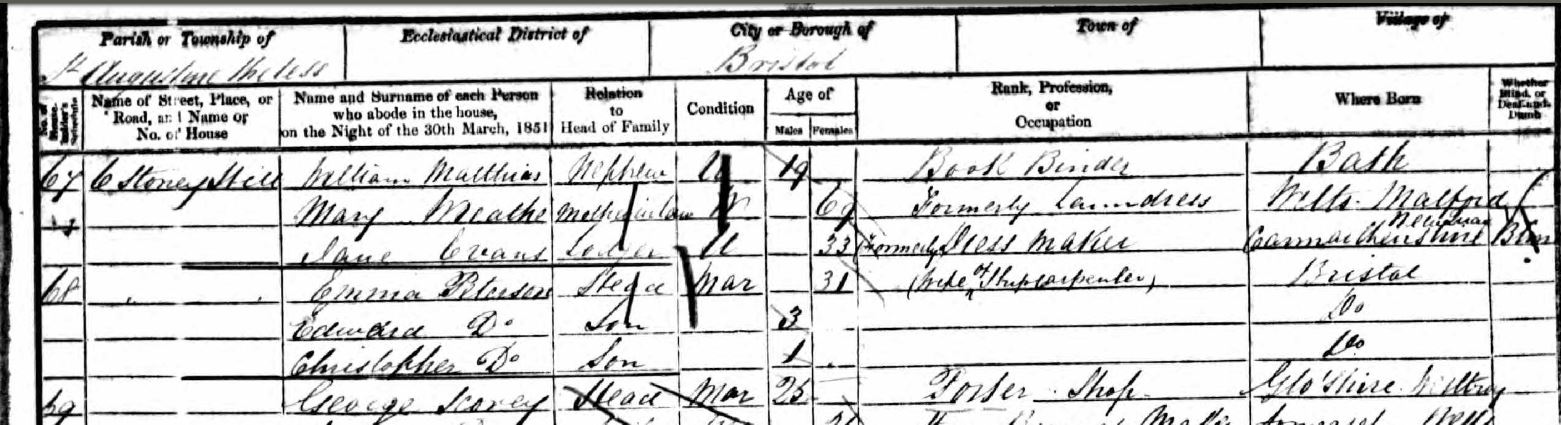 Parish or Township of Ecclesiastical District of City or Borough of Town of Village of
St Augustine the less Bristol
No. of House-holder's Schedule Name of Street, Place, or Road, and Name or No. of House Name and Surname of each Person who abode in the house, on the Night of the 30th March, 1851 Relation to Head of Family Condition Age of Males Females Rank, Profession, or Occupation Where Born Whether Blind, or Deaf-and-Dumb
67 6 Stoney Hill William Matthias Nephew U 19 Book Binder Bath
Mary Motherinlaw W 69 Formerly Laundress Wilts Malford
Jane Evans Lodger U 33 (Formerly) Dress Maker Carmarthenshire
68 Emma Peterson Head Mar 31 (Wife of Shipcarpenter) Bristol
Edward Do Son 3 Do
Christopher Do Son 1 Do
69 George Head Mar 25 Porter Shop Glo'shire
Somerset